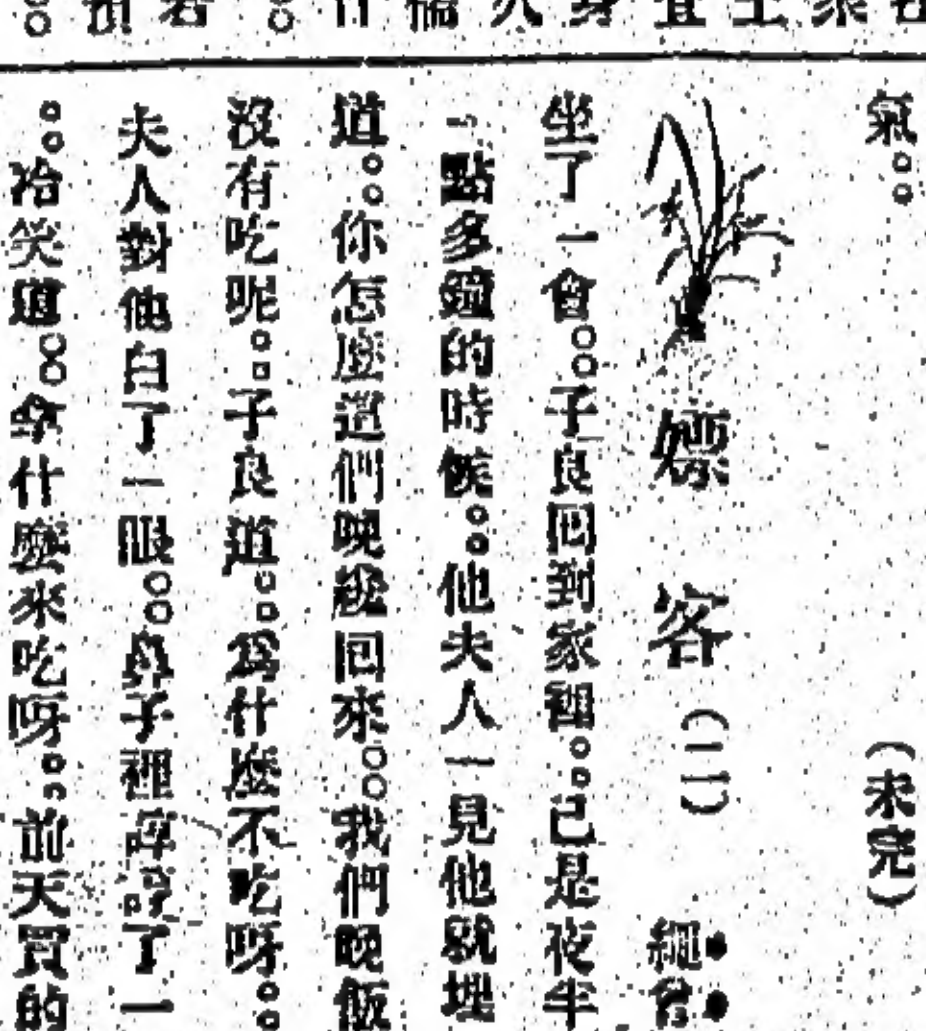 氣。。
（未完）
嫖客（二）
坐了一會。。子良回到家裡。。已是夜半
一點多鐘的時候。。他夫人一見他就埋
道。。你怎麼這們晚纔回來。。我們晚飯
沒有吃呢。。子良道。。爲什麼不吃呀。。
夫人對他白了一眼。。鼻子裡哼哼了一
。。冷笑道。。拿什麼來吃呀。。前天買的